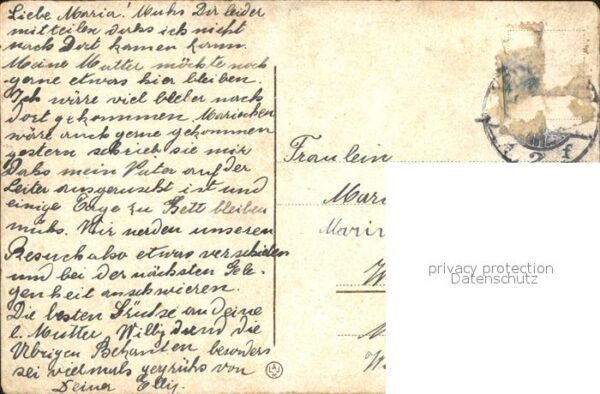 Liebe Maria! Muhs Dir leider
mitteilen dahs ich nicht
nach Dort komen kann.
Meine Mutter möchte noch
gerne etwas hier bleiben.
Ich wäre viel lieber nach
dort gekommen. Mariechen
wäre auch gerne gekommen
gestern schrieb sie mir
Dahs mein Vater auf der
Leiter ausgeruscht ist und
einige Tage zu Bett bleiben
muhs. Wir werden unseren
Besuch also etwas verschieben
und bei der nächsten Gele-
genheit
Die besten Grühse an deine
l. Mutter, Willy und die
Übrigen Bekanten besonders
sei vielmals gegrühs von
Deiner Elly.
Fraulein
Mari
privacy protection
Datenschutz